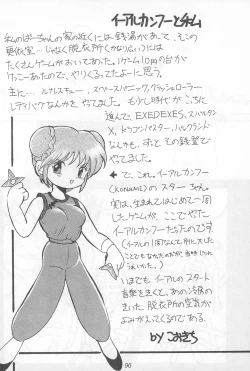 イーアルカンフーと私
私のばーちゃんの家の近くには銭湯があって、そこの
更衣室…じゃなく脱衣所(くかないい)には
たくさんゲームがおいてあった。1ゲーム10円の台が
けっこーあったので、やりくるってたよーに思う。
主に…ルナレスキュー、スペースパニック、クラッシュローラー
レディバグなんかをやてました。もう少し時代がこっちに
進んで、EXEDEXES、スパルタン
X、ドラゴンバスター、パックランド
なんかも、ずっと、その銭湯で
やてました。
← で、これ。イーアルカンフー
(KONAMI)のスターちゃん。
実は、生まれてはじめて一周
したゲームが、ここでやた
イーアルカンフーだったのです。
(イーアルの1周なんて、別に大した
ことでもなかったのだが、当時じった
うれしかった。)
いまでも イーアルのスタート
音楽をきくと、あの冷房の
きいた 脱衣所の空気が
よみがえってくるのである。
by こみきち
96